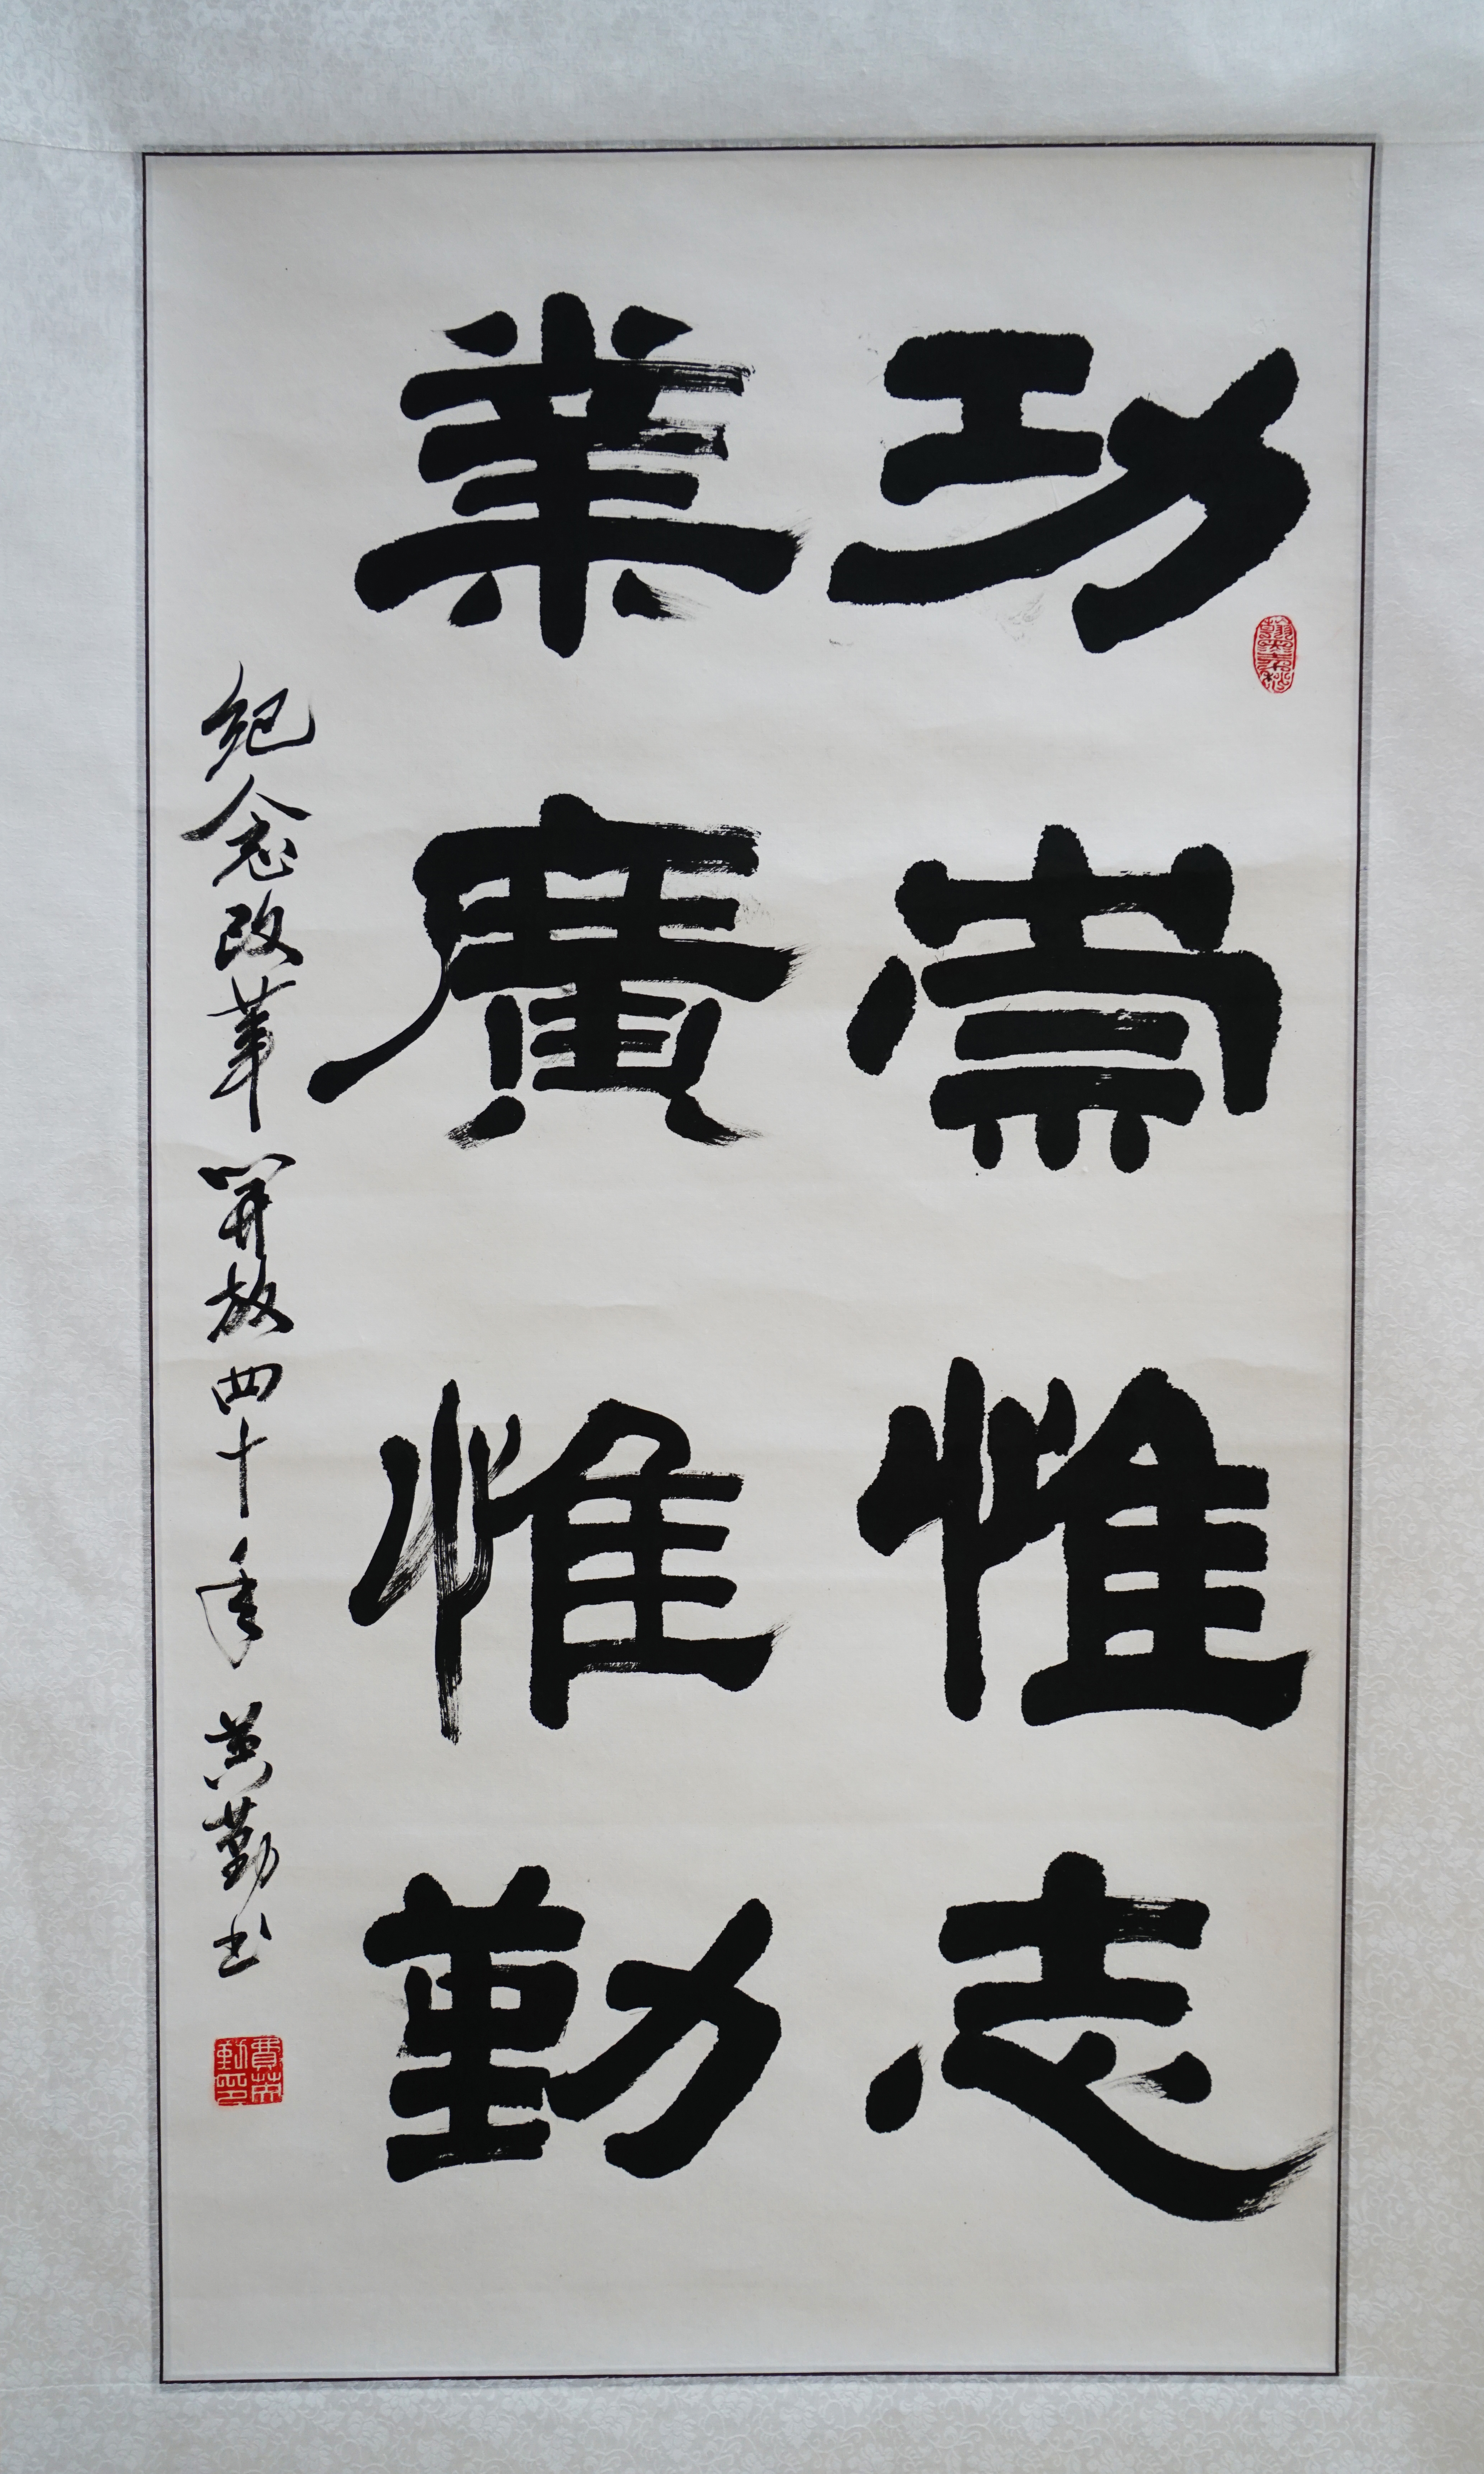 功崇惟志
業廣惟勤
紀念改革開放四十年 英勤书
費英勤印